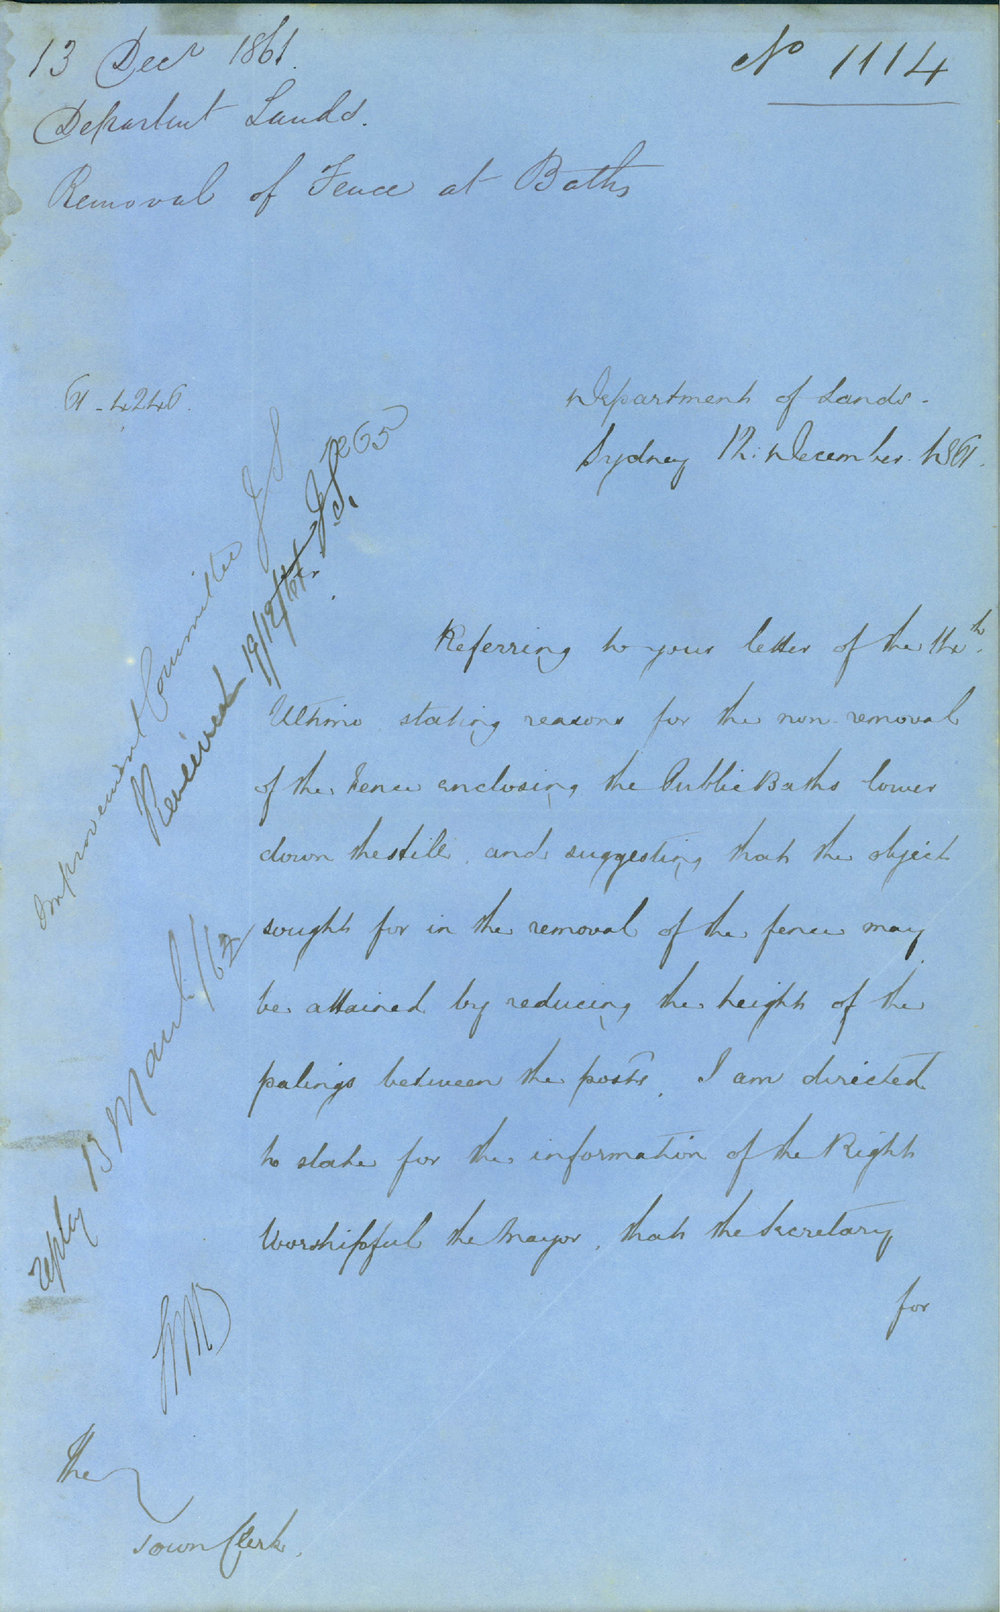 13 Decr 1861.
No 1114
Department Lands.
Removal of Fence at Baths
61-4246.
Department of Lands.
Sydney 12. December 1861.
Referring to your letter of the 11th.
Ultimo stating reasons for the non removal
of the Fence enclosing the Public Baths lower
down the still, and suggesting that the object
sought for in the removal of the fence may
be attained by reducing the height of the
palings between the posts, I am directed
to state for the information of the Right
Worshipful the Mayor, that the Secretary
for
The
Town Clerk.
Improvement Committee JS
Received 19/12/61. JS.
265
reply 13 March/62